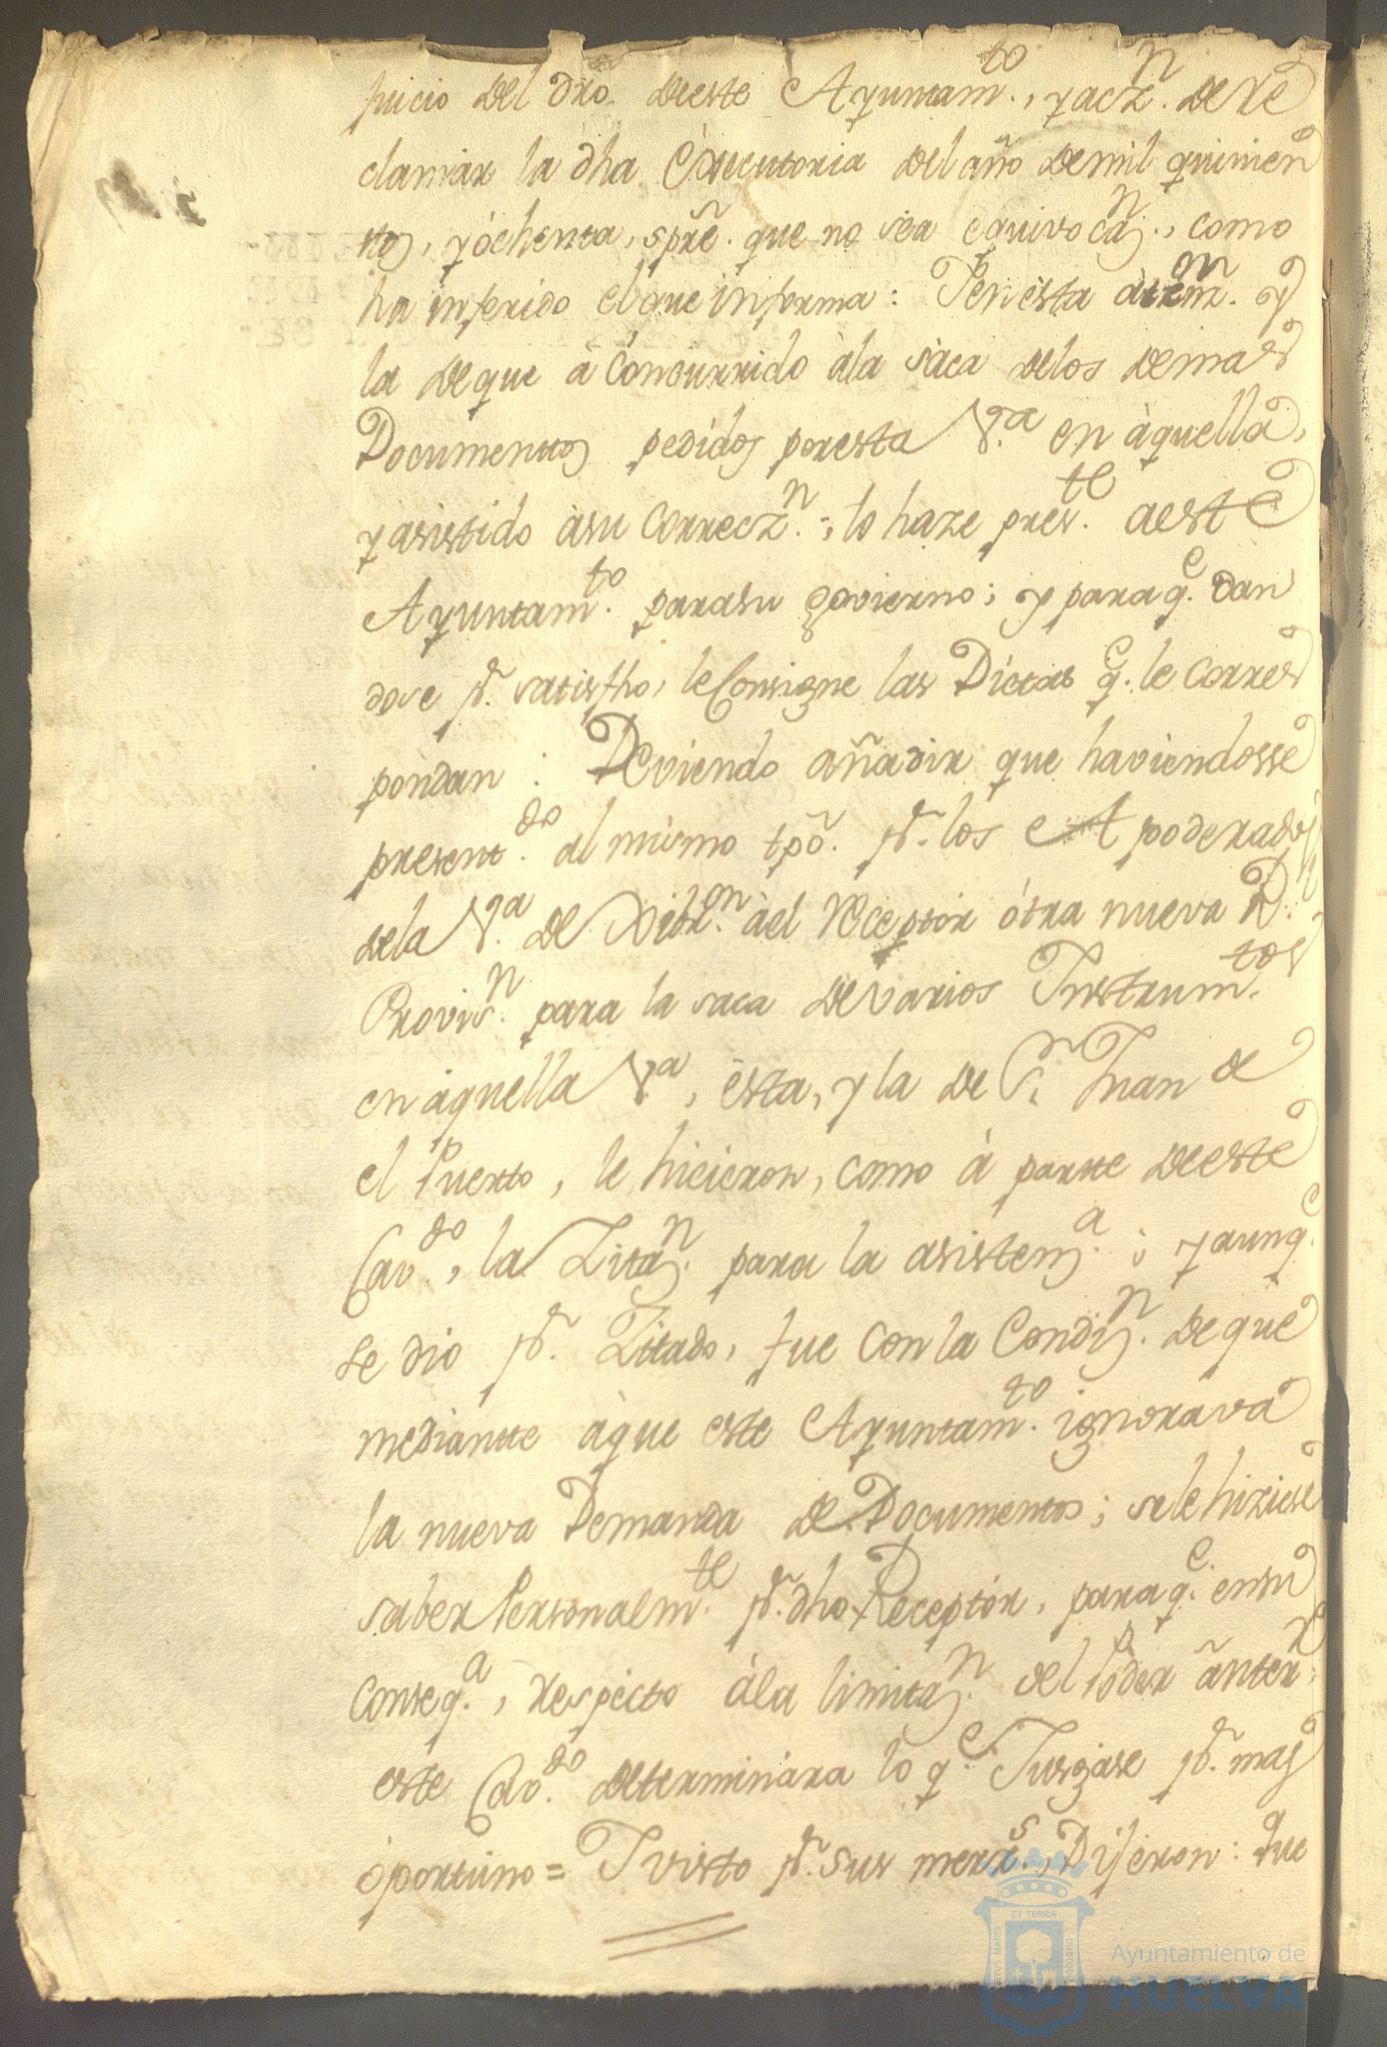 juicio del dro. deeste Ayuntamto., y aczn. de Re
clamar la dha Executoria del año demil quinien
tos, y óchenta, spre. que no sea equivocasn., como
ha inferido el que informa: Y en ésta aten
la deque á concurrido àla sáca delos demas
Documenttos pedidos poresta Va. en àquella,
y asistido àsu Correczn.; lo haze preste. aeste
Ayuntamto. parasu govierno; y paraqe. dan
dose pr. satisfho, le Consigne las Dietas qe. le Corres
pondan: Deviendo añadir que haviendosse
presentdo. al mismo tpo. pr. los Apoderados
dela Va. de Gibrn. àel Rceptor ótra nueva Rl.
Provisn. para la saca devarios Instrumtos.
en àquella Va, ésta, y la de Sn. Juan de
el Puerto, le hicieron, como á partte deeste
Cavdo., la Zitasn. para la asistensa.; y aunqe.
se dio pr. Zitado, fue con la Condisn. de que
mediantte àque este Ayuntamto. ignorava
la nueva Demanda de Documentos; sele hiziese
saber Personalmte. pr. dho Receptór, paraqe. ensu
Conseqa., respecto àla limitasn. del Poder ánterr.
este Cavdo. determinára lo qe. Jusgáse pr. mas
óportuno = Y visto pr. sus merzs., Dijeron: Que
Ayuntamiento de
HUELVA